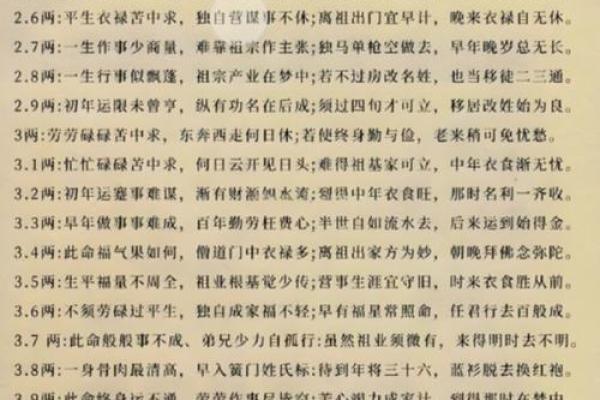 2.6两:平生衣禄苦中求，独自营谋事不休;离祖出门宜早计，晚来衣禄自无休。
2.7两:一生作事少商量，难靠祖宗作主张;独马单枪空做去，早年晚岁总无长。
2.8两:一生行事似飘蓬，祖宗产业在梦中;若不过房改名姓，也当移徒二三通。
2.9两:初年运限未曾亨，纵有功名在后成;须过四旬才可立，移居改姓始为良。
3两:劳劳碌碌苦中求，东奔西走何日休;若使终身勤与俭，老来稍可免忧愁。
3.1两:忙忙碌碌苦中求，何日云开见日头;难得祖基家可立，中年衣食渐无忧。
3.2两:初年运蹇事难谋，渐有财源如水流;到得中年衣食旺，那时名利一齐收。
3.3两:早年做事事难成，百年勤劳枉费心;半世自如流水去，后来运到始得金。
3.4两:此命福气果如何，僧道门中衣禄多;离祖出家方为妙，朝晚拜佛念弥陀。
3.5两:生平福量不周全，祖业根基觉少传;营事生涯宜守旧，时来衣食胜从前。
3.6两:不须劳碌过平生，独自成家福不轻;早有福星常照命，任君行去百般成。
3.7 两:此命般般事不成、弟兄少力自孤行:虽然祖业须微有，来得明时去不明。
3.8两:一身骨肉最清高，早入簧门姓氏标:待到年将三十六，蓝衫脱去换红袍。
3.9两:此命终身运不通，劳劳作事尽皆空:苦心竭力成家计，到得那时在梦中